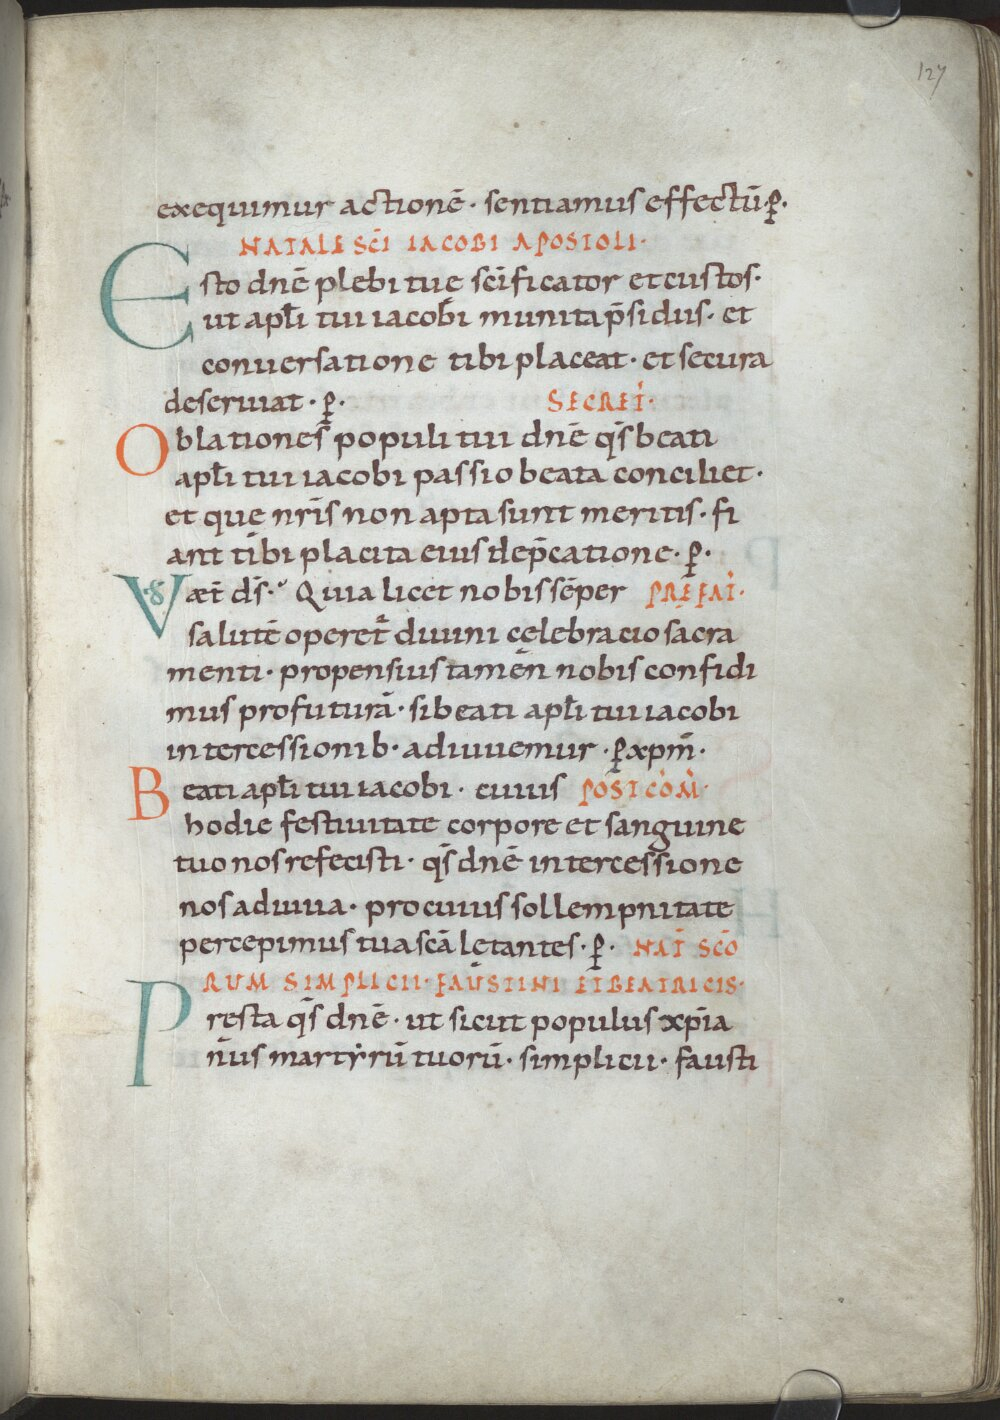 127
exequimur actionē · sentiamus effectū · ꝑ ·
NATALE SC̄I IACOBI APOSTOLI ·
Esto dn̄e plebi tuę sc̄ificator et custos ·
ut apl̄i tui iacobi munita p̄sidiis · et
conuersatione tibi placeat · et secura
deseruiat · ꝑ · SECRET̄ ·
Oblationes populi tui dn̄e qs̄ beati
apl̄i tui iacobi passio beata conciliet ·
et quę nr̄is non apta sunt meritis · fi
ant tibi placita eius dep̄catione · ꝑ ·
V& æt̄ ds̄ · Quia licet nobis sēper PREFAT̄ ·
salutē operet̄ diuini cęlebracio sacra
menti · propensius tamen nobis confidi
mus profuturā · si beati apl̄i tui iacobi
intercessionib · adiuuemur · ꝑ xpm̄ ·
Beati apl̄i tui iacobi · cuius POST COM̄ ·
hodie festiuitate corpore et sanguine
tuo nos refecisti · qs̄ dn̄e intercessione
nos adiuua · pro cuius sollempnitate
percepimus tua scā lętantes · ꝑ · NAT̄ SCŌ
RUM SIMPLICII · FAUSTINI ET BEATRICIS ·
Presta qs̄ dn̄e · ut sicut populus xp̄ia
nus martyrū tuorū · simplicii · fausti